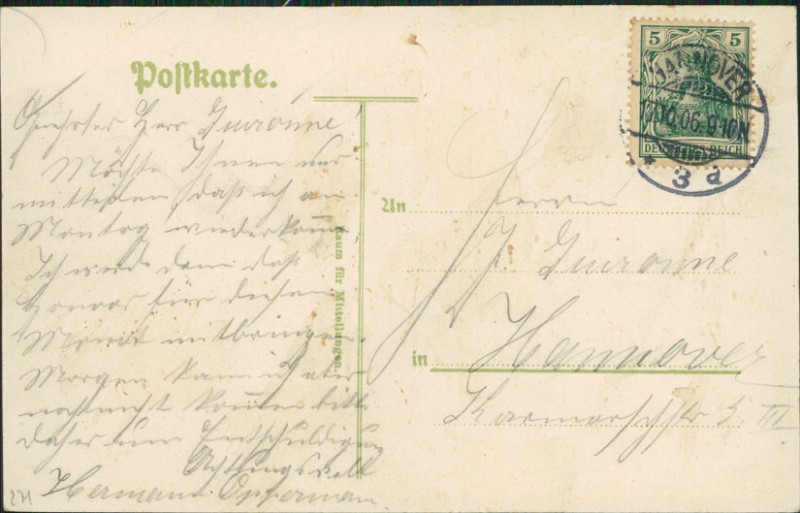 Postkarte.
Geehrter Herr Guironne!
Möchte Ihnen nur
mitteilen, daß ich am
Montag wiederkomme,
Ich werde dann das
Honorar für diesen
Monat mitbringen.
Morgen kann ich aber
noch nicht kommen bitte
daher um Entschuldigung
Achtungsvoll
Hermann Oppermann
271
Raum für Mitteilungen.
5 5
DEUTSCHES REICH
HANNOVER
06. 9-10N
* 3 a
An Herrn
J. Guironne
in Hannover
Karmarschstr 5 III